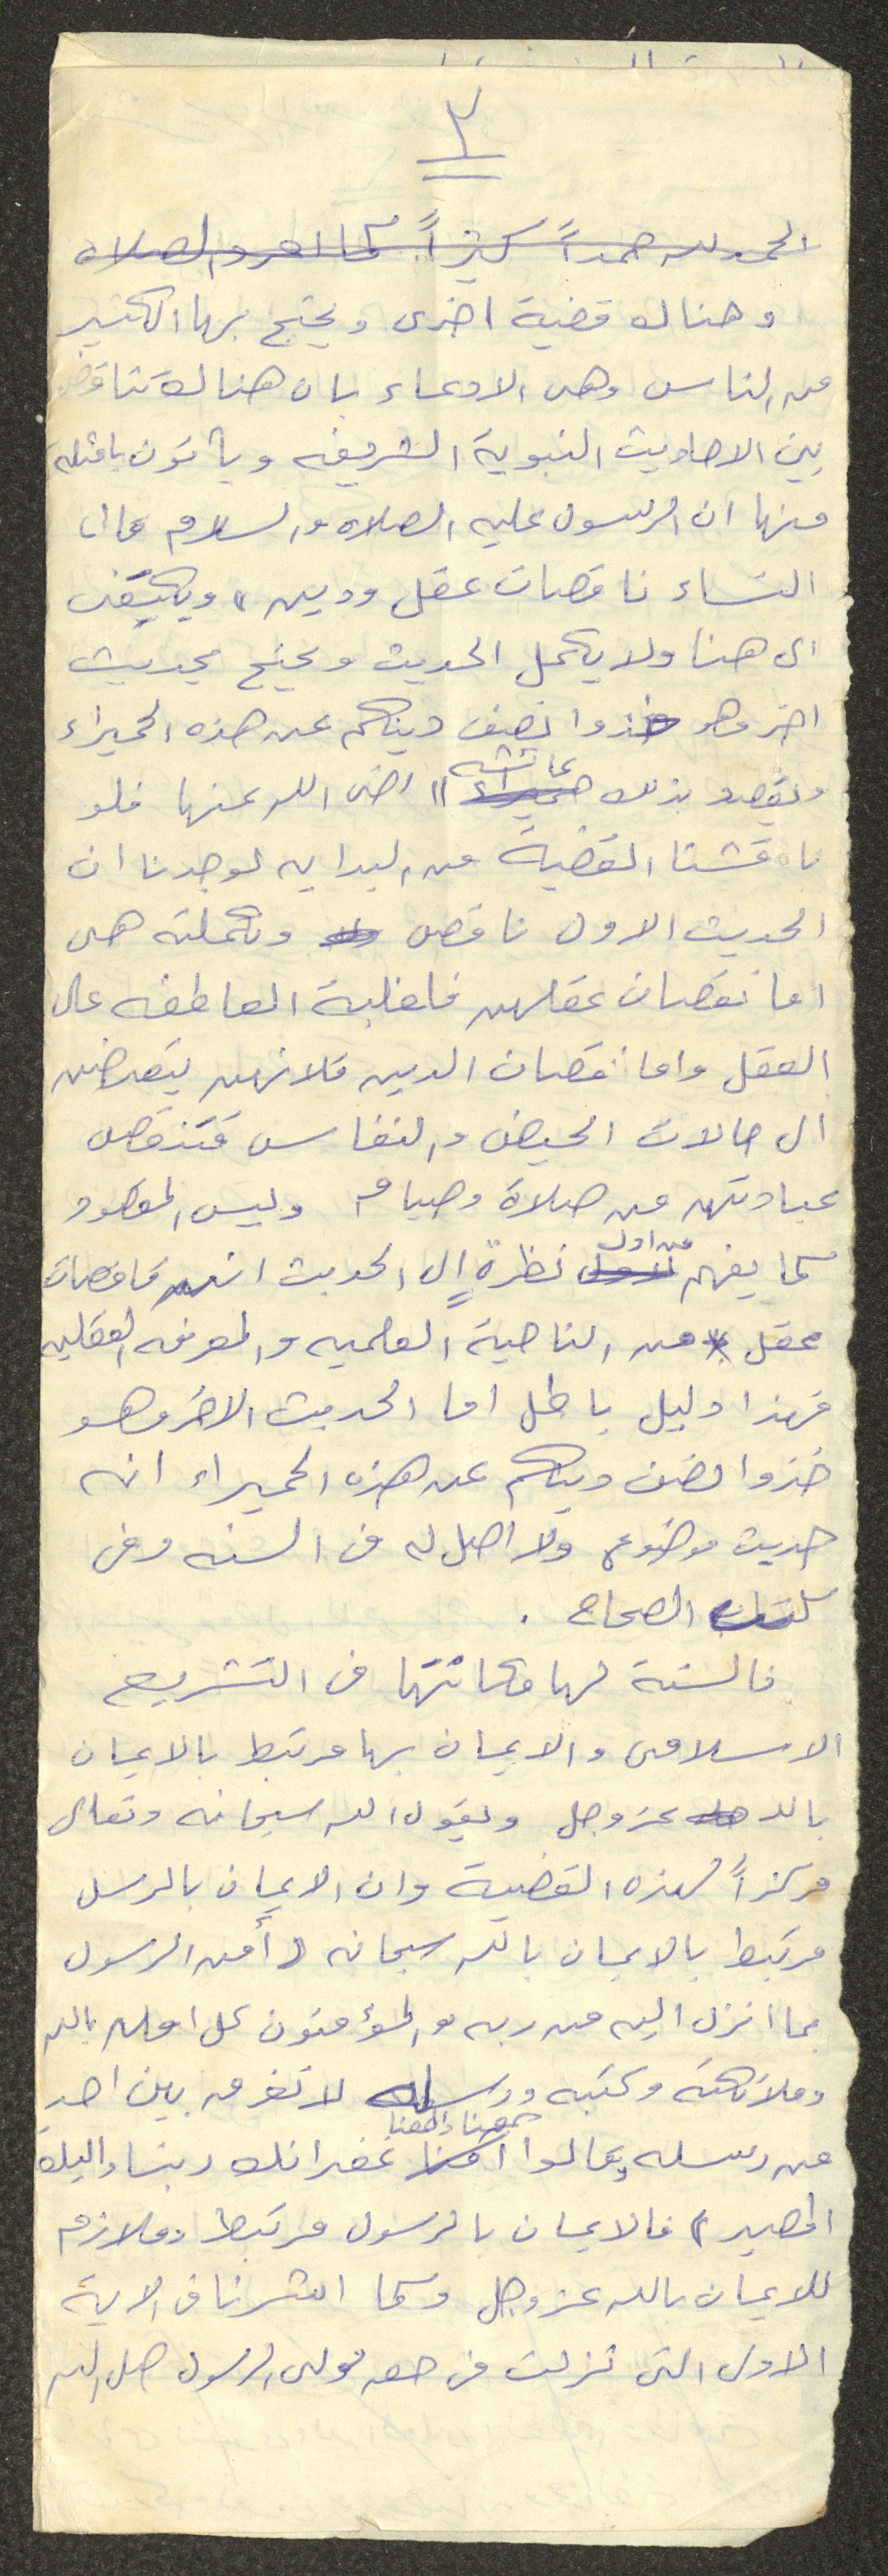 ٢
الحمد لله حمداً كثيراً كما امر والصلاه
وهناك قضية اخرى ويحتج بها الكثير
من الناس وهى الادعاء بان هناك تناقض
بين الاحاديث النبوية الشريفه ويأتون بامثله
منها ان الرسول عليه الصلاه والسلام قال
النساء ناقصات عقل ودين" ويكتفى
الى هنا ولا يكمل الحديث ويحتج بحديث
اخر وهو خذوا نصف دينكم عن هذه الحميراء
ويقصد بذلك عائشه" رضى الله عنها فلو
ناقشنا القضية من البدايه لوجدنا ان
الحديث الاول ناقص وتكملته هى
اما نقصان عقلهن فلغلبة العاطفه على
العقل واما نقصان الدين فلانهن يتعرضن
الى حالات الحيض والنفاس فتنقص
عبادتهن من صلاة وصيام وليس المقصود
كما يفهم من اول نظرة إلى الحديث انهن ناقصات
عقل من الناحية العلميه والمعرفه العقليه
فهذا دليل باطل اما الحديث الاخر وهو
خذوا نصف دينكم عن هذه الحميراء انه
حديث موضوع ولا اصل له فى السنه وفى
كتب الصحاح .
فالسنة لها مكانتها فى التشريع
الاسلامى والايمان بها مرتبط بالايمان
بالله عز وجل ويقول الله سبحانه وتعالى
مركزاً لهذه القضية وان الايمان بالرسل
مرتبط بالايمان بالله سبحانه (أمن الرسول
بما انزل اليه من ربه والمؤمنون كل امن بالله
وملائكته وكتبه ورسله لا نفرق بين احدٍ
من رسله وقالوا سمعنا واطعنا غفرانك ربنا واليك
المصير) فالايمان بالرسول مرتبط وملازم
للايمان بالله عز وجل وكما اشرنا فى الاية
الاولى التى نزلت فى حق مولى الرسول صلى الله